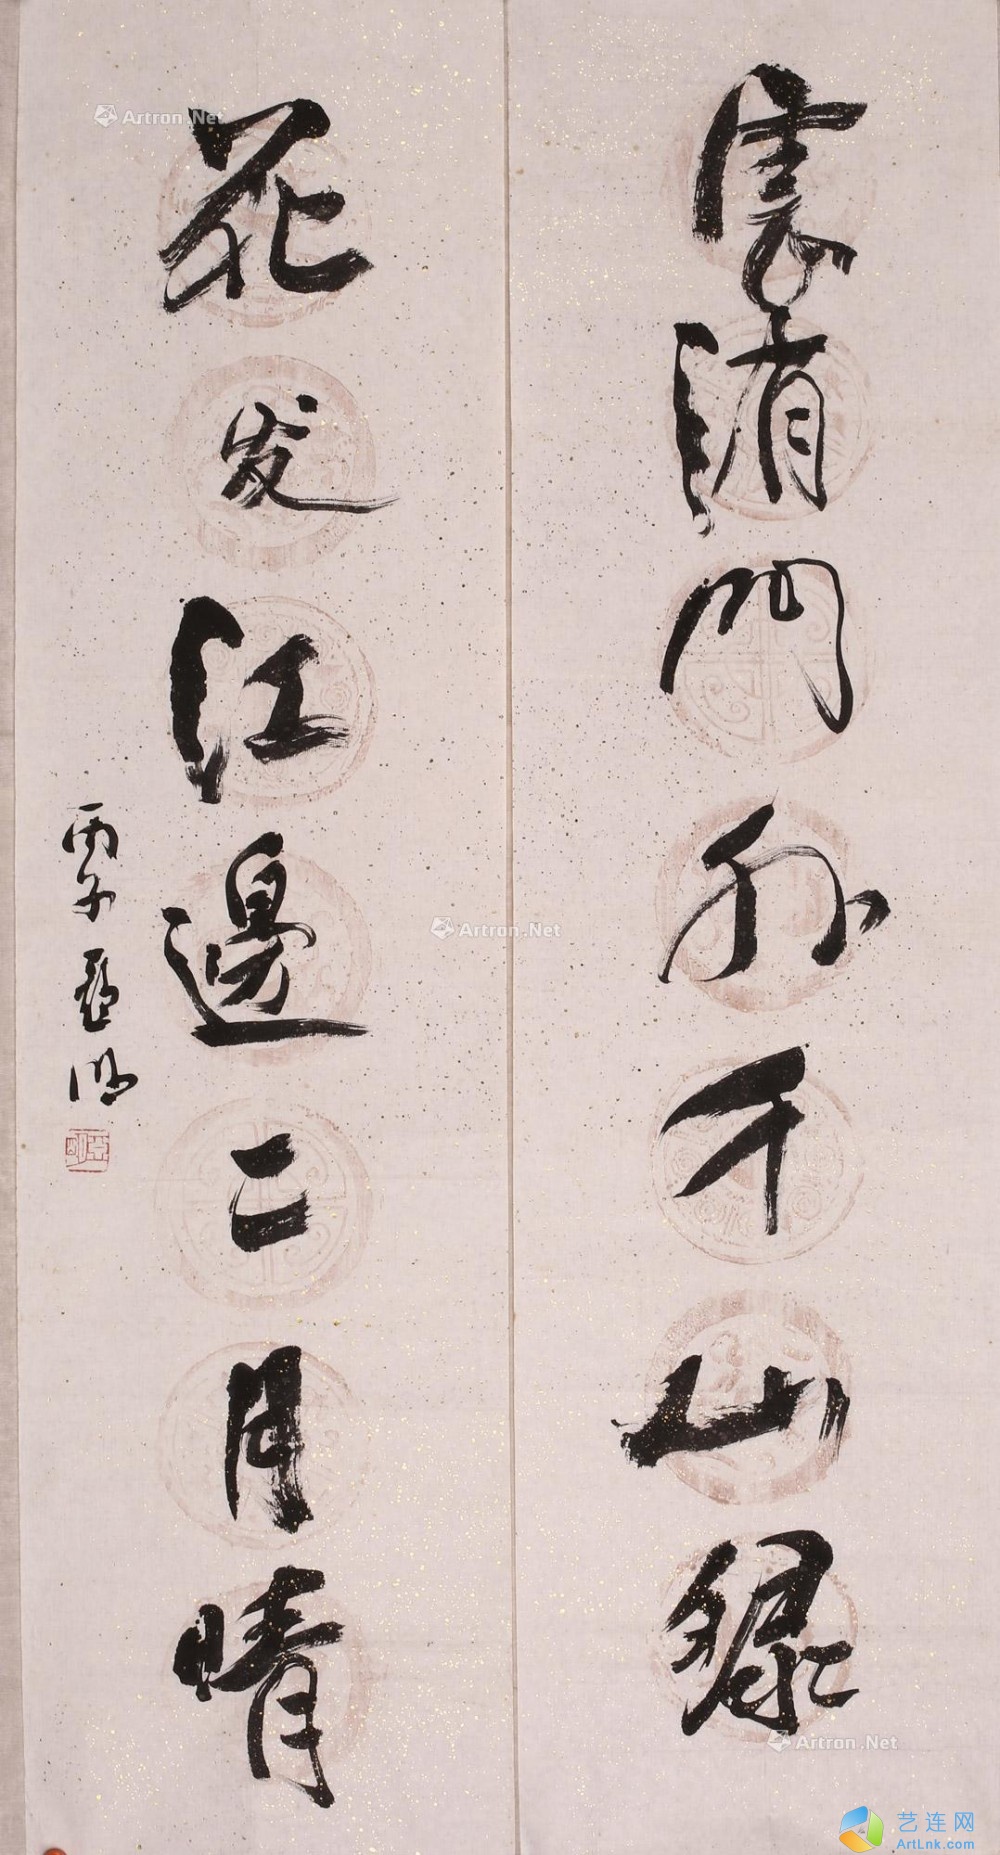 雪消門外千山绿
花发江邊二月晴
丙子亞明
Artron.Net
Artron.Net
Artron.Net
艺连网
ArtLnk.com